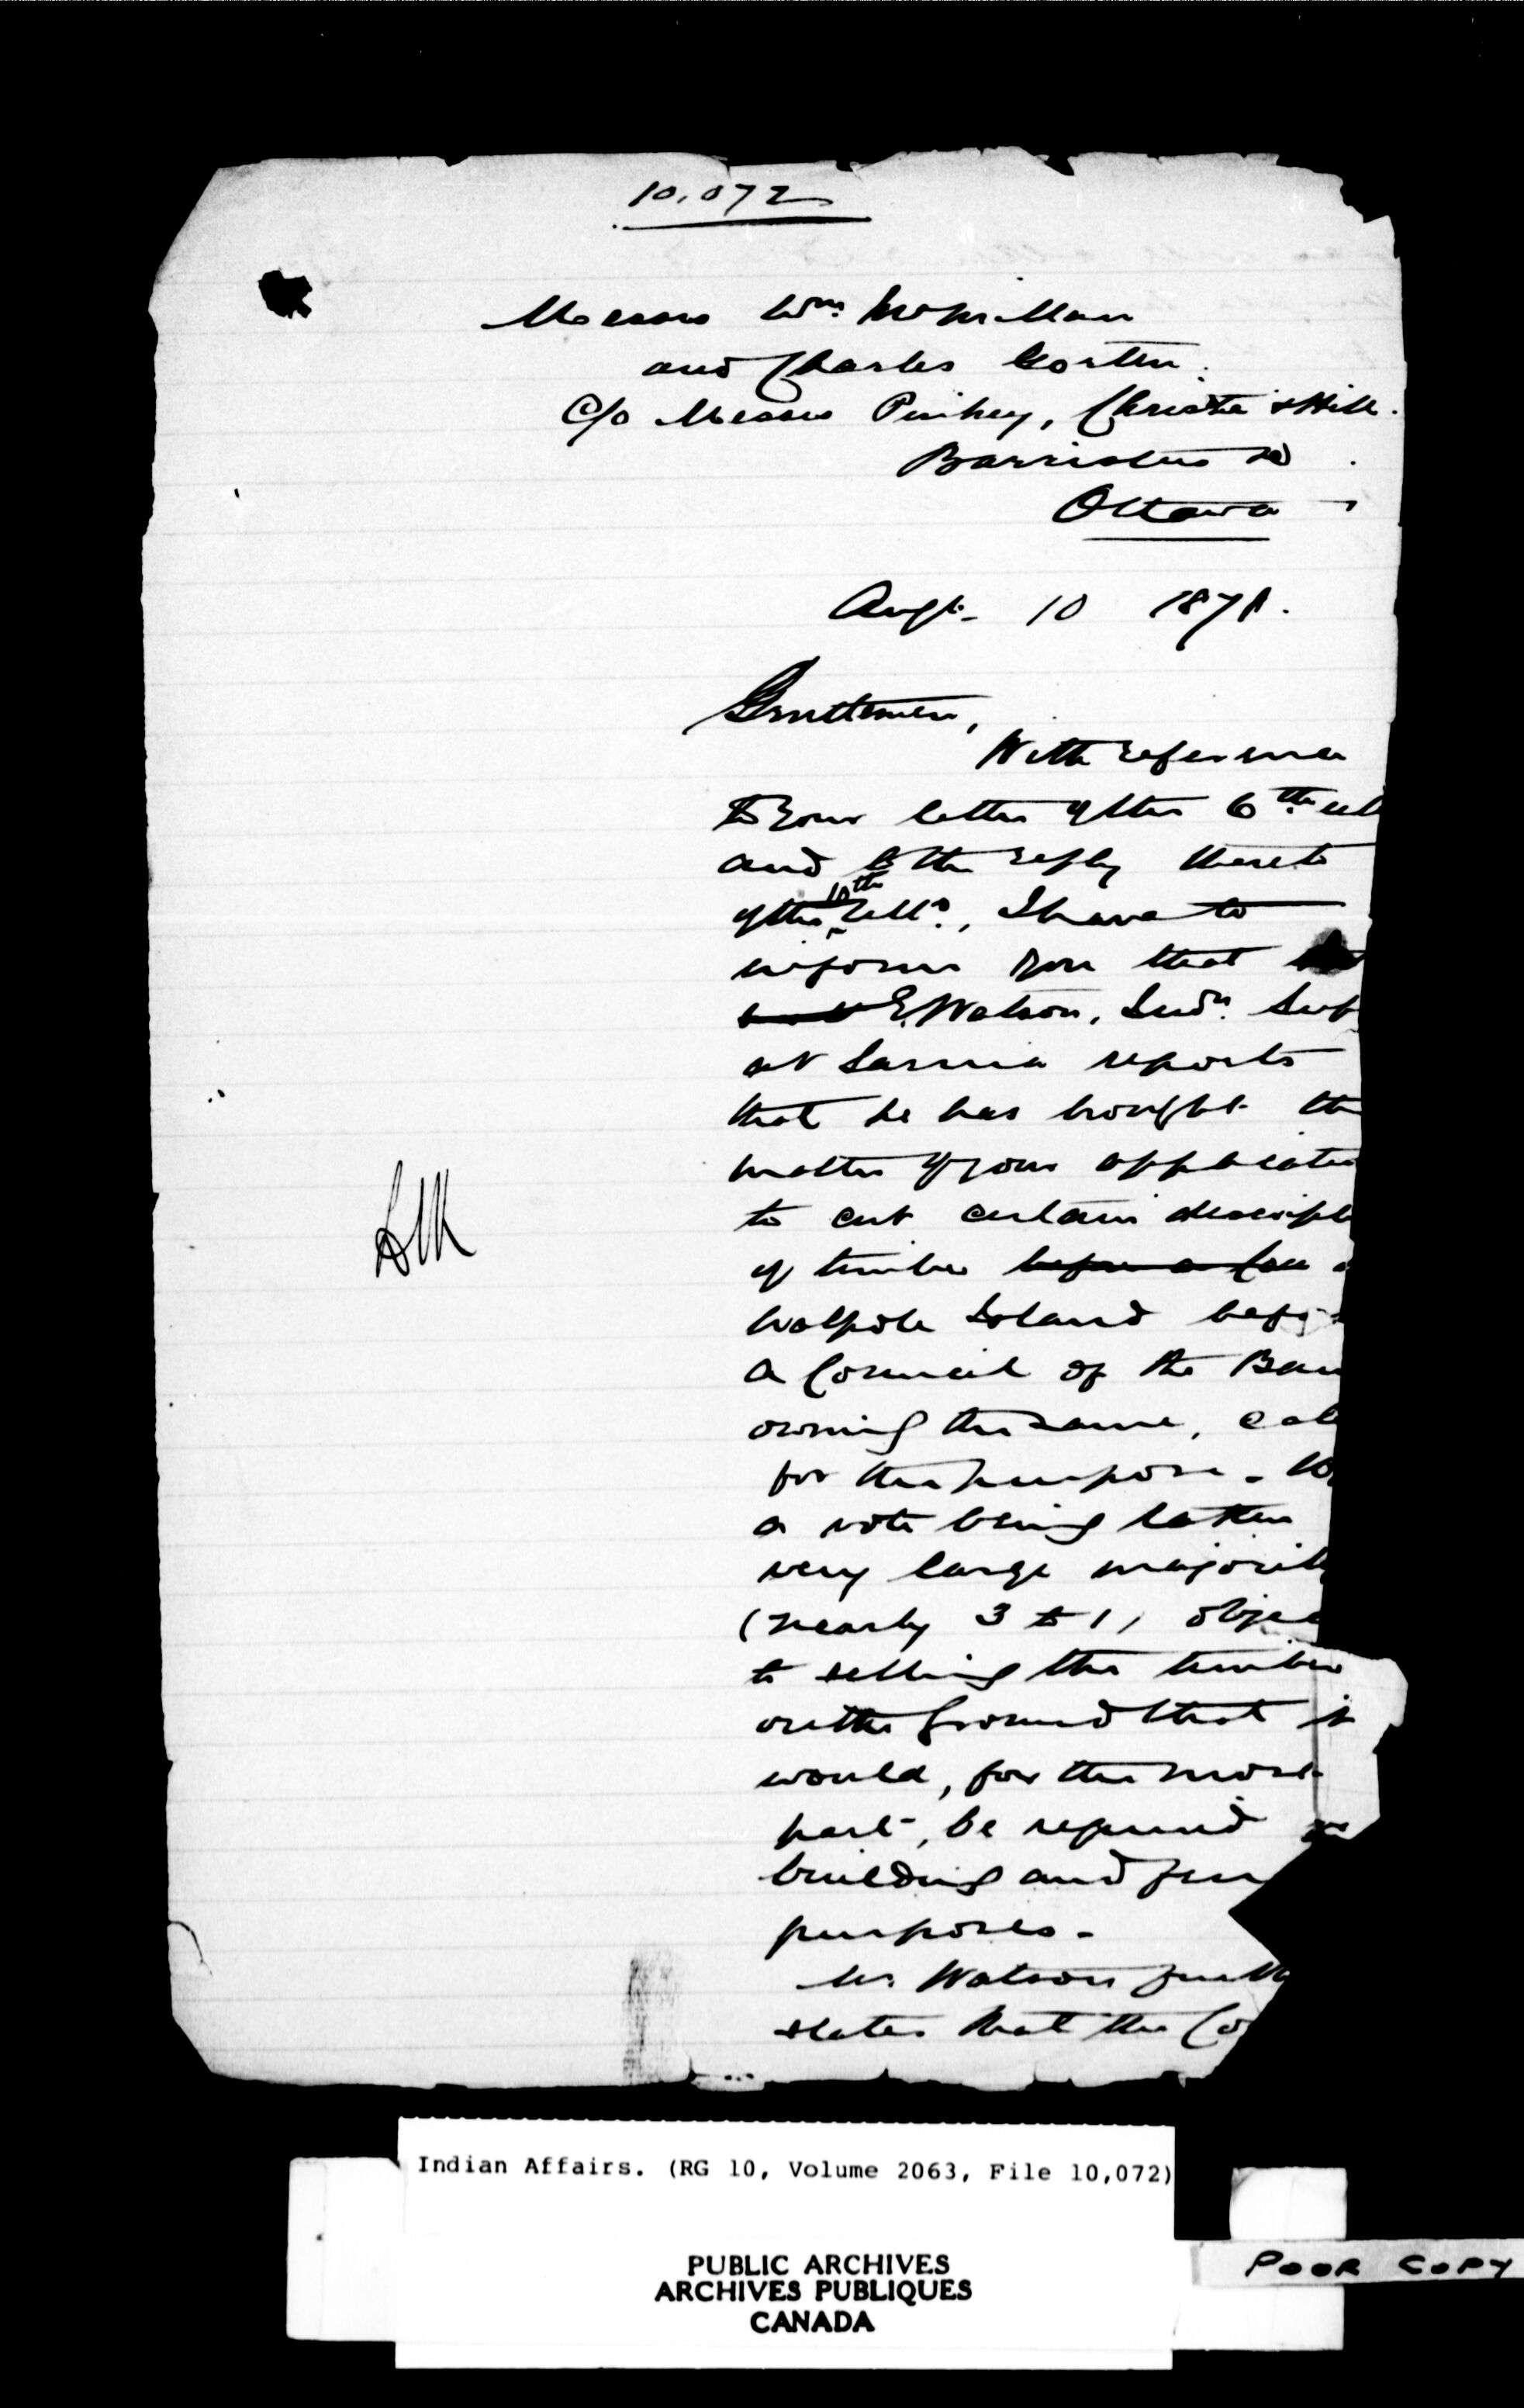 10,072
Messrs Wm. McMillan
and Charles
c/o Messrs Pinhey, Christie & Hill.
Barristers &c
Ottawa
Augt. 10 1878.
Gentlemen,
With reference
to your letter of the 6th ult
and to the reply thereto
of the 10th ulto., I have to
inform you that
E. Watson, Indn. Sup
at Sarnia reports
that he has brought the
matter of your applicatio
to cut certain descript
of timber before a Cou o
Walpole Island befo
a Council of the Ban
owning the same, call
for the purpose -
a vote being taken
very large majorit
(nearly 3 to 1) objec
to selling the timber
on the ground that it
would, for the most
part, be required
building and fen
purposes -
Mr. Watson furth
states that the Co
Indian Affairs. (RG 10, Volume 2063, File 10,072)
PUBLIC ARCHIVES
ARCHIVES PUBLIQUES
CANADA
POOR COPY